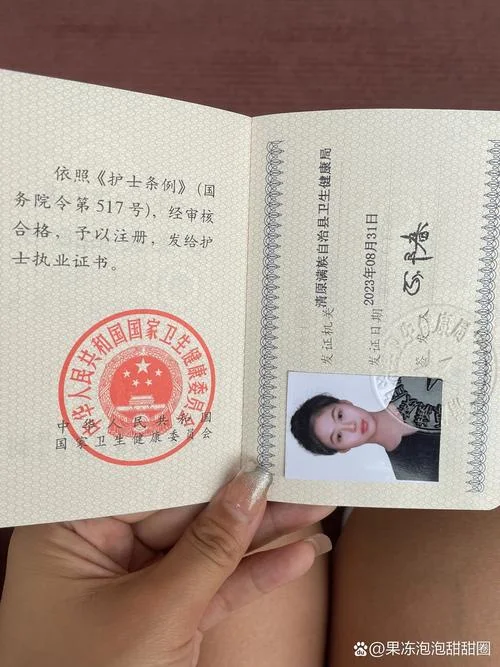 依照《护士条例》(国
务院令第 517 号)，经审核
合格，予以注册，发给护
士执业证书。
中华人民共和国国家卫生健康委员会
中华人民共和国
国家卫生健康委员会
发证机关 清原满族自治县卫生健康局
发证日期 2023年08月31日
签发人
@果冻泡泡甜甜圈